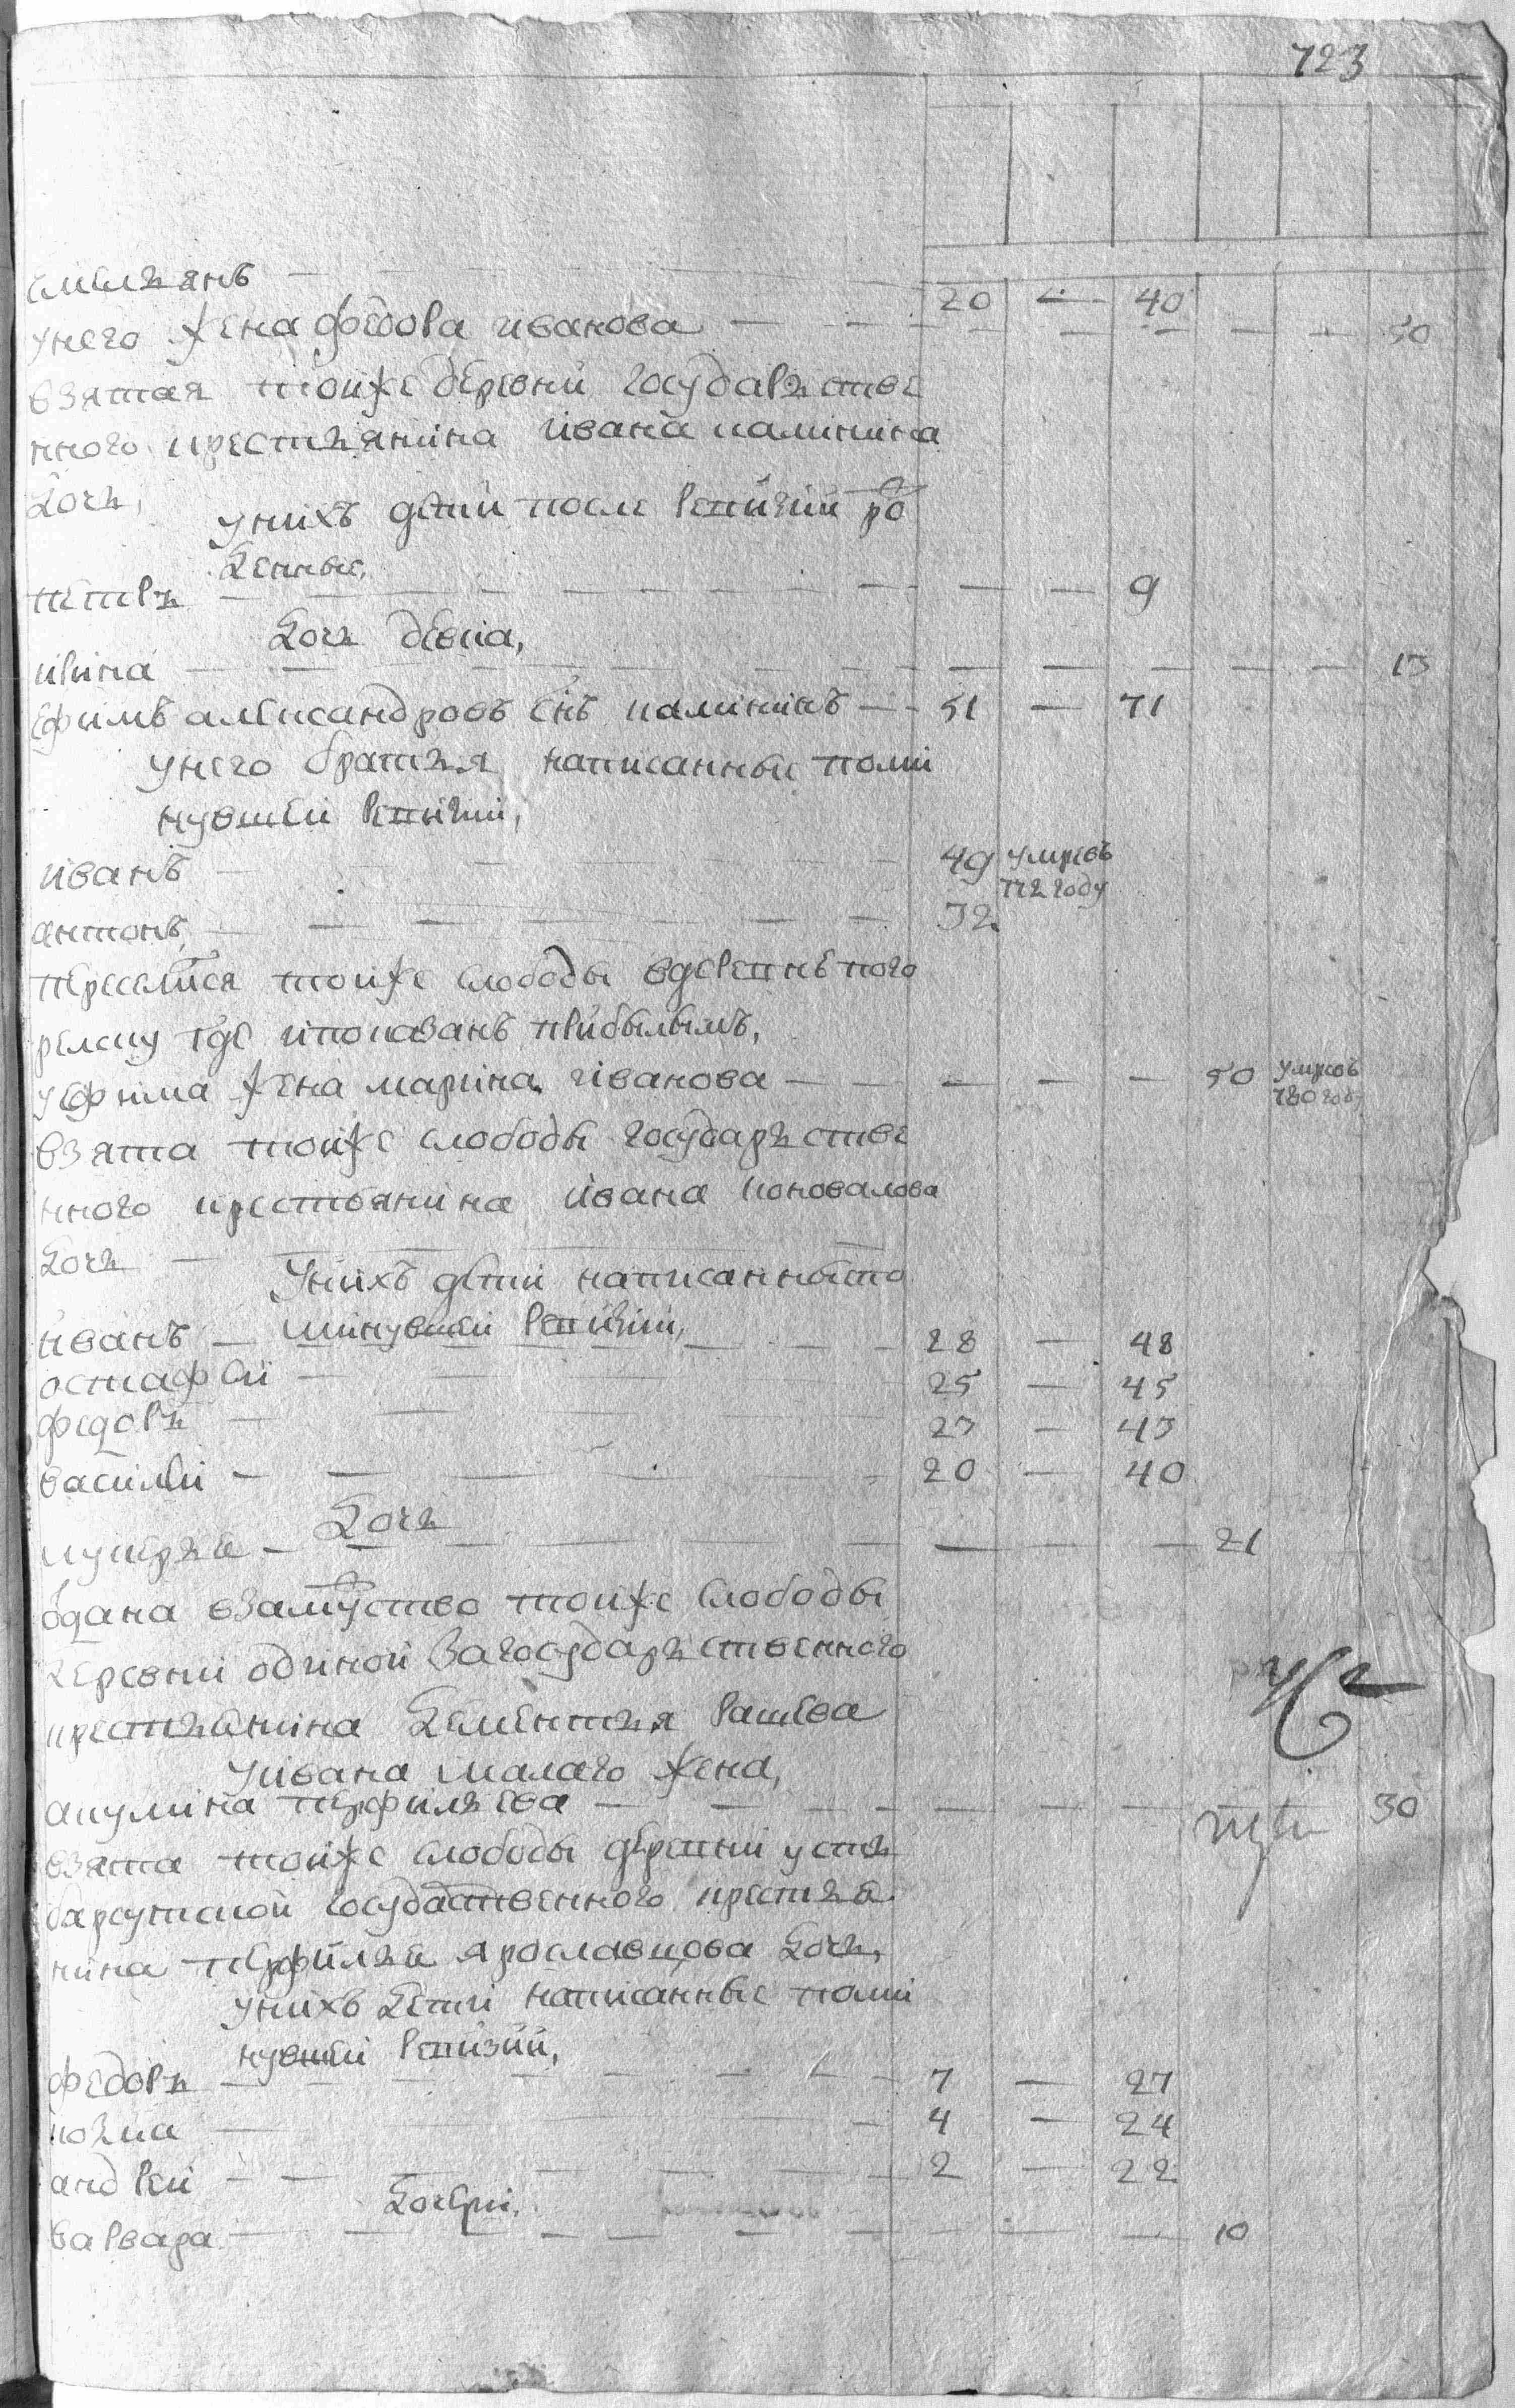 723
емельянъ — 20 — 40
унего жена федора иванова — — — — — 30
взятая тойже деревни государьстве
нного крестьянина ивана калинина
дочь,
унихъ дети после ревизии ро
жденные,
петръ — — — 9
дочь девка,
ирина — — — — — — 13
ефимъ александровъ снъ калининъ — 51 — 71
унего братья написанные поми
нувшей ревизии,
иванъ — 49 умревъ
772 году
антонъ, — 32
переселился тойже слободы вдеревнѣ
где ипоказанъ прибылымъ,
уефима жена марина иванова — — — — 50 умревъ
780 году
взята тойже слободы государьстве
нного крестьянина ивана коновалова
дочь —
Унихъ дети написанныепо
минувшей ревизии,
иванъ — 28 — 48
остафеи — 25 — 45
федоръ — 23 — 43
василеи — 20 — 40
дочь
лукерья — — — — 21
одана взамуство тойже слободы
деревни одиной загосударьственного
крестьянина дементья рашева
уивана малаго жена,
акулина перфильева — — — — 30
взята тойже слободы деревни усть
барсутской государственного крестья
нина перфилья ярославцова дочь,
унихъ дети написанные поми
нувшей ревизии,
федоръ — 7 — 27
козма — 4 — 24
андреи — 2 — 22
дочери,
варвара — — — — 10